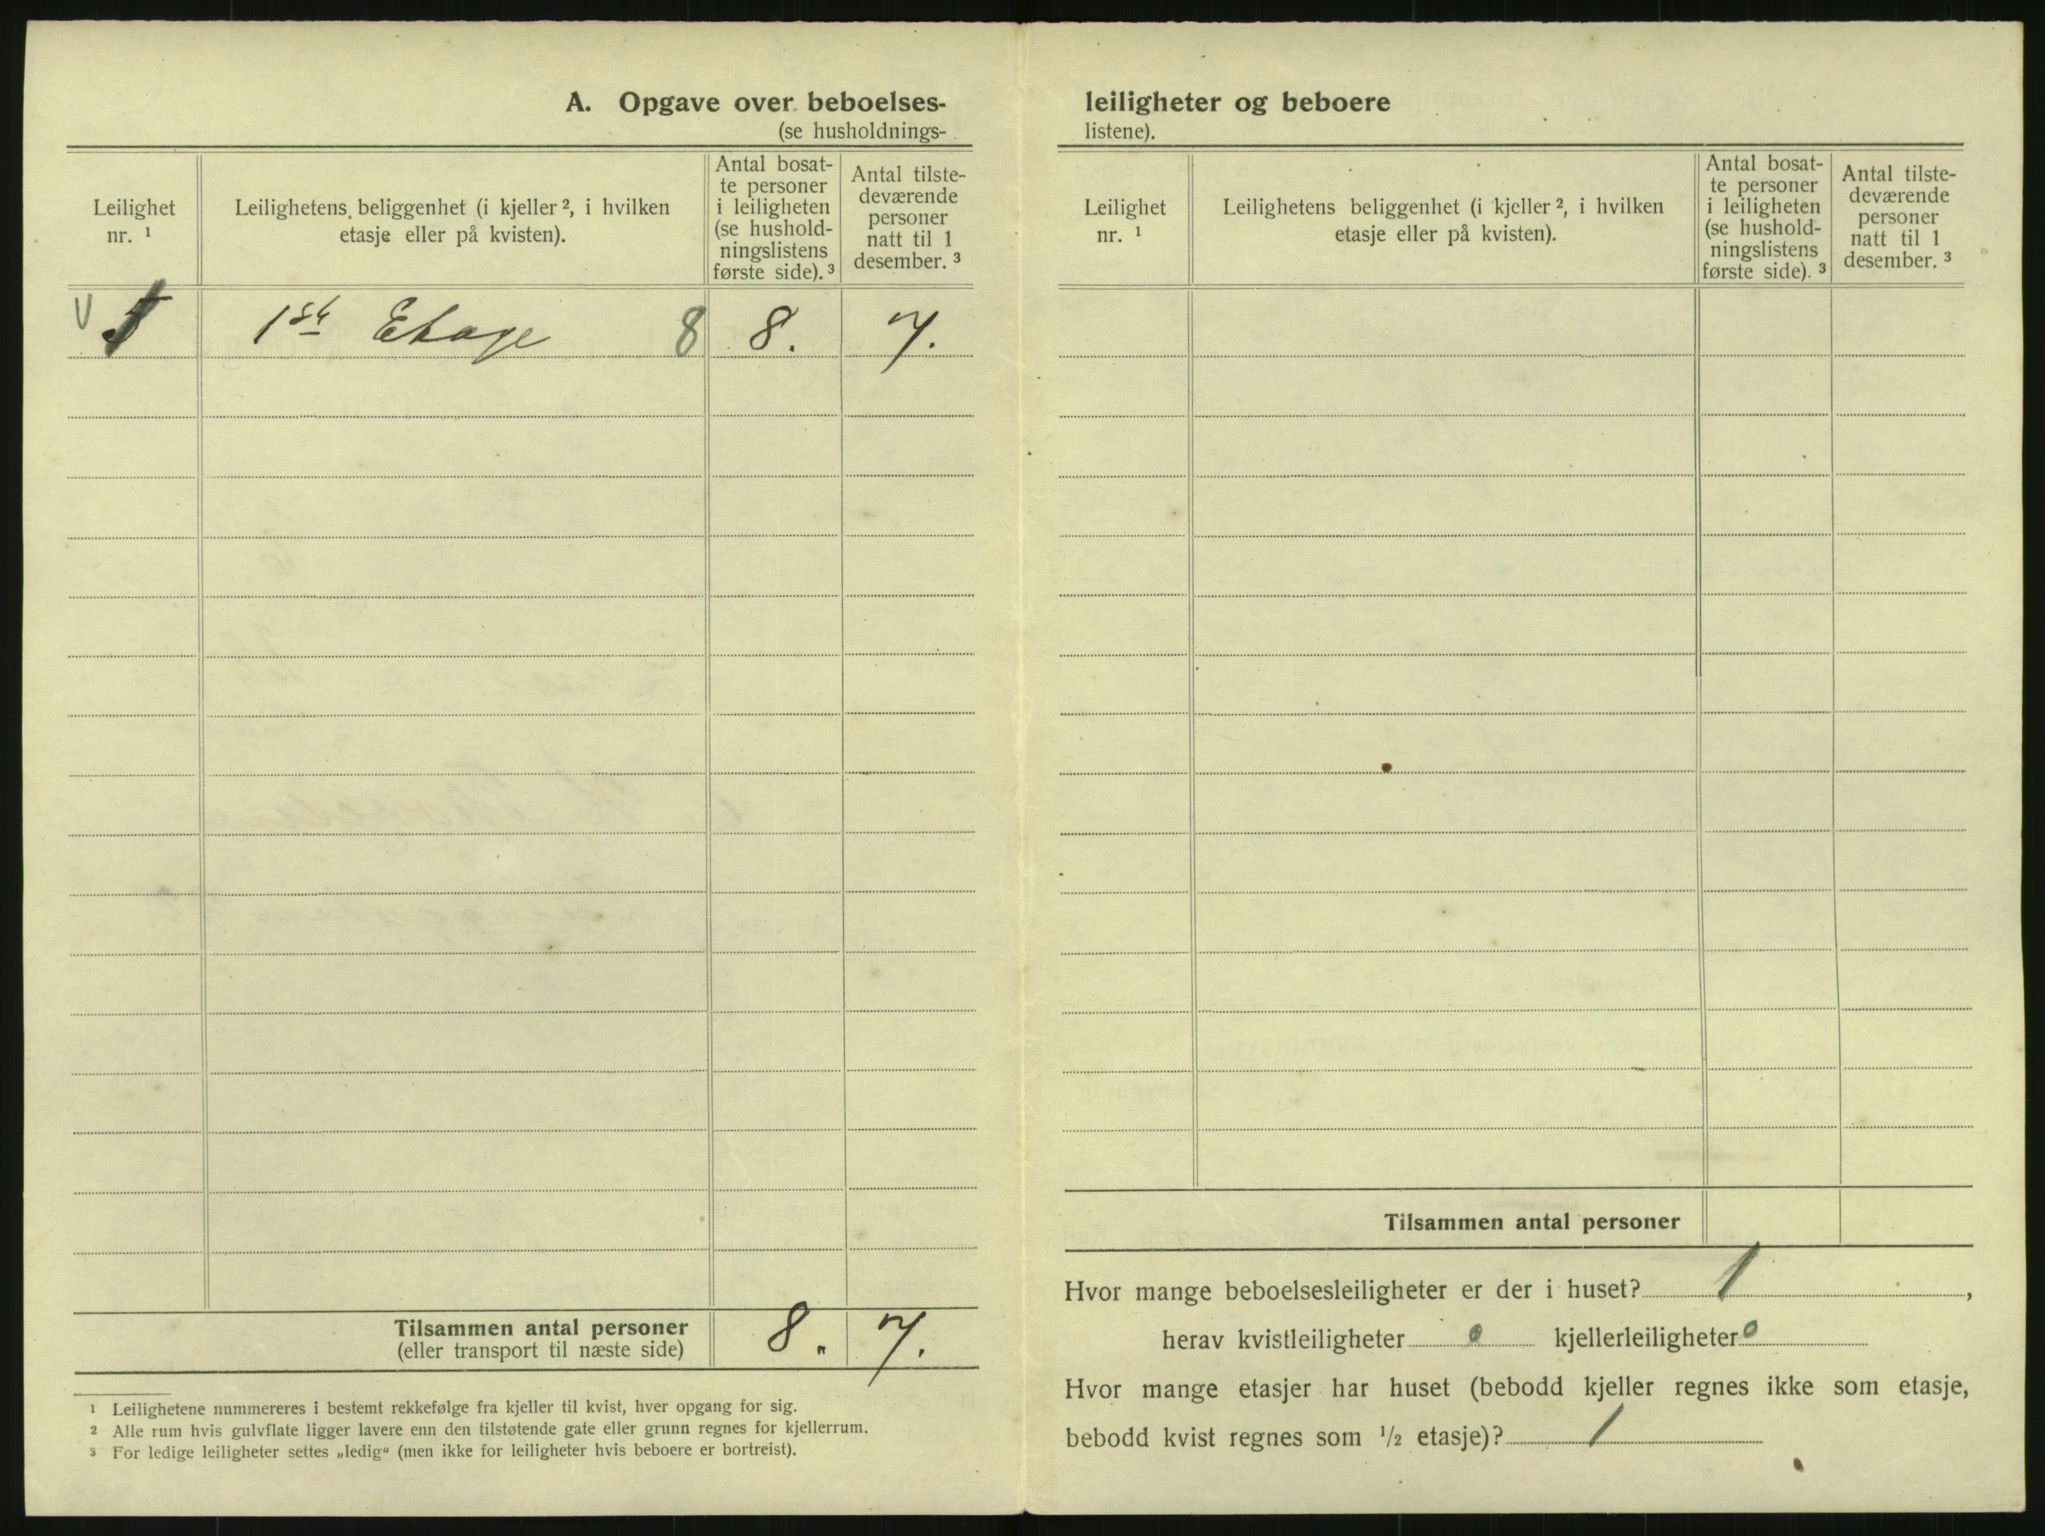 A. Opgave over beboelses-
(se husholdnings-
Leilighet nr. ¹
Leilighetens beliggenhet (i kjeller ², i hvilken etasje eller på kvisten).
Antal bosat-
te personer
i leiligheten
(se hushold-
ningslistens
første side). ³
Antal tilste-
deværende
personer
natt til 1
desember. ³
V 1 1ste Etage 8 8. 7.
Tilsammen antal personer 8. 7.
(eller transport til næste side)
¹ Leilighetene nummereres i bestemt rekkefølge fra kjeller til kvist, hver opgang for sig.
² Alle rum hvis gulvflate ligger lavere enn den tilstøtende gate eller grunn regnes for kjellerrum.
³ For ledige leiligheter settes „ledig“ (men ikke for leiligheter hvis beboere er bortreist).
leiligheter og beboere
listene).
Leilighet nr. ¹
Leilighetens beliggenhet (i kjeller ², i hvilken etasje eller på kvisten).
Antal bosat-
te personer
i leiligheten
(se hushold-
ningslistens
første side). ³
Antal tilste-
deværende
personer
natt til 1
desember. ³
Tilsammen antal personer
Hvor mange beboelsesleiligheter er der i huset? 1,
herav kvistleiligheter 0 kjellerleiligheter 0
Hvor mange etasjer har huset (bebodd kjeller regnes ikke som etasje,
bebodd kvist regnes som ½ etasje)? 1